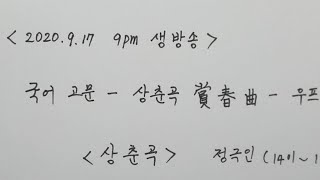 < 2020.9.17 9pm 생방송 >
국어 고문 - 상춘곡 賞春曲 - 우프
< 상춘곡 > 정극인 (1401~1